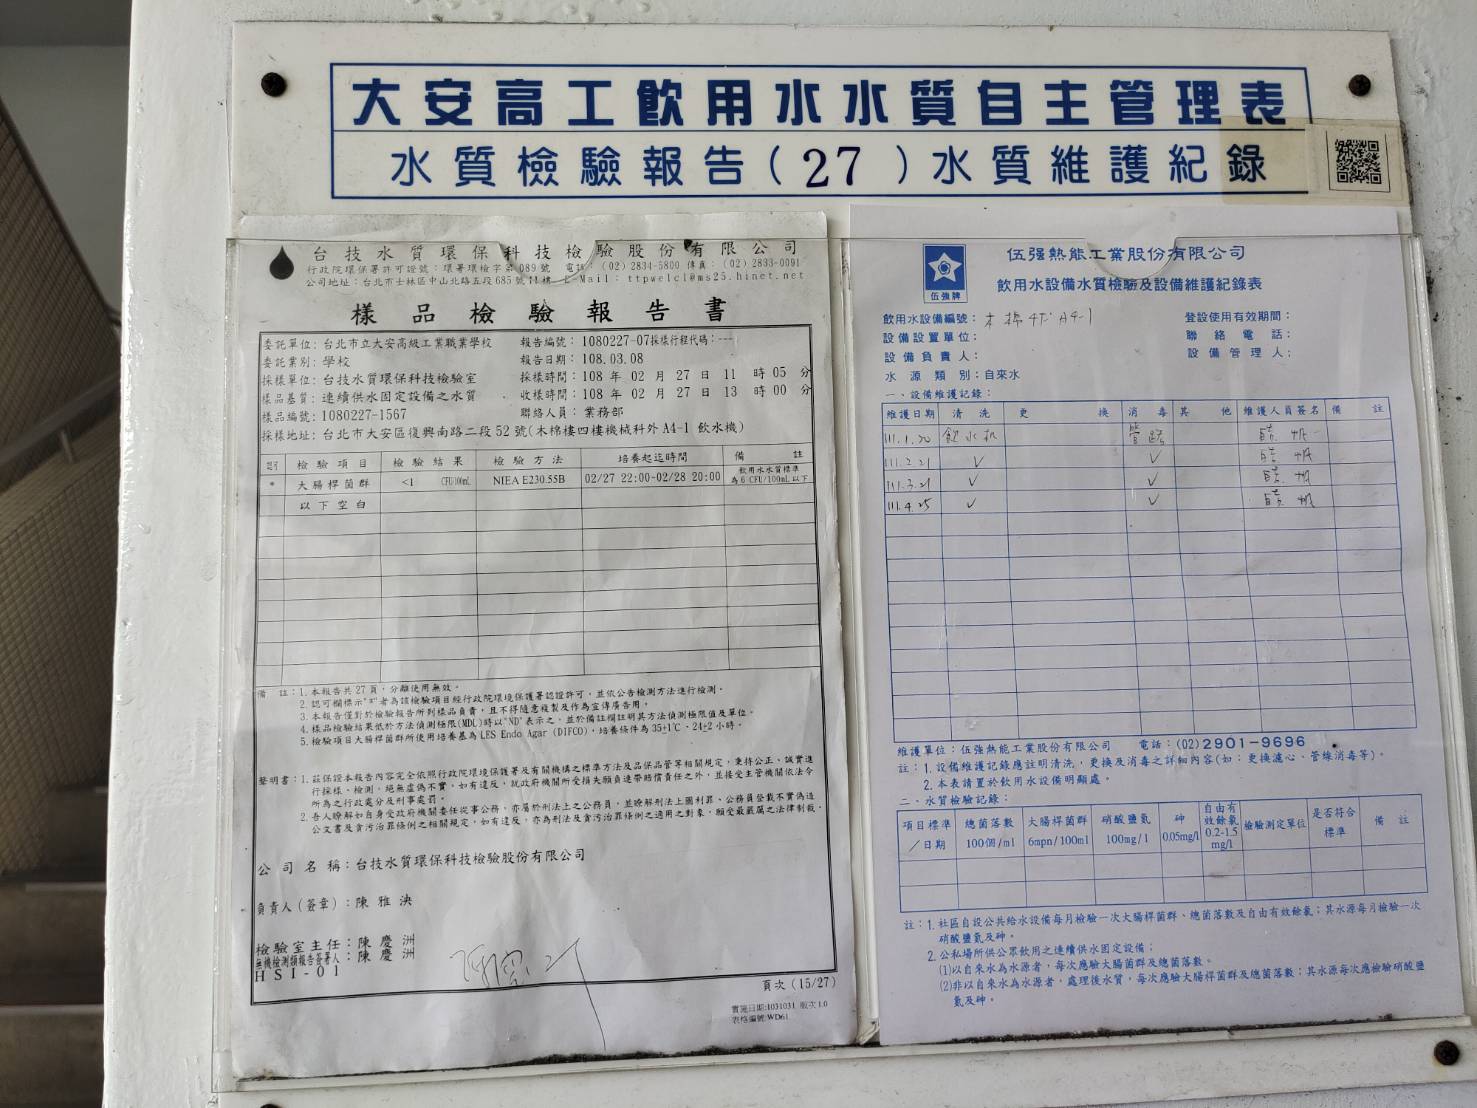 大安高工飲用水水質自主管理表
水質檢驗報告(27)水質維護紀錄
台技水質環保科技檢驗股份有限公司
行政院環保署許可證號：環署環檢字第089號 電話：(02)2834-5800 傳真：(02)2833-0091
公司地址：台北市士林區中山北路五段685號11樓 E-Mail：ttpwelcl@ms25.hinet.net
樣品檢驗報告書
委託單位：台北市立大安高級工業職業學校 報告編號：1080227-07採樣行程代碼：---
委託業別：學校 報告日期：108.03.08
採樣單位：台技水質環保科技檢驗室 採樣時間：108 年 02 月 27 日 11 時 05 分
樣品基質：連續供水固定設備之水質 收樣時間：108 年 02 月 27 日 13 時 00 分
樣品編號：1080227-1567 聯絡人員：業務部
採樣地址：台北市大安區復興南路二段52號(木棉樓四樓機械科外A4-1 飲水機)
檢驗項目 檢驗結果 檢驗方法 培養起迄時間 備註
* 大腸桿菌群 <1 CFU/100mL NIEA E230.55B 02/27 22:00-02/28 20:00 飲用水水質標準為6 CFU/100mL以下
以下空白
備 註：1.本報告共27頁，分離使用無效。
2.認可欄標示"*"者為該檢驗項目經行政院環境保護署認證許可，並依公告檢測方法進行檢測。
3.本報告僅對於檢驗報告所列樣品負責，且不得隨意複製及作為宣傳廣告用。
4.樣品檢驗結果低於方法偵測極限(MDL)時以"ND"表示之，並於備註欄註明其方法偵測極限值及單位。
5.檢驗項目大腸桿菌群所使用培養基為LES Endo Agar (DIFCO)，培養條件為35±1℃、24±2小時。
聲明書：1.茲保證本報告內容完全依照行政院環境保護署及有關機構之標準方法及品保品管等相關規定，秉持公正、誠實進
行採樣、檢測。絕無虛偽不實，如有違反，就政府機關所受損失願負連帶賠償責任之外，並接受主管機關依法令
所為之行政處分及刑事處罰。
2.吾人瞭解如自身受政府機關委任從事公務，亦屬於刑法上之公務員，並瞭解刑法上圖利罪、公務員登載不實偽造
公文書及貪污治罪條例之相關規定，如有違反，亦為刑法及貪污治罪條例之適用之對象，願受最嚴厲之法律制裁。
公司名稱：台技水質環保科技檢驗股份有限公司
負責人(簽章)：陳雅泱
檢驗室主任：陳慶洲
無機檢測類報告簽署人：陳慶洲
HSI-01
頁次 (15/27)
實施日期:1031031 版次1.0
表格編號:WD61
伍強牌
伍强熱能工業股份有限公司
飲用水設備水質檢驗及設備維護紀錄表
飲用水設備編號：木棉4F A4-1 登設使用有效期間：
設備設置單位： 聯絡電話：
設備負責人： 設備管理人：
水源類別：自來水
一、設備維護記錄：
維護日期 清洗 更換 消毒 其他 維護人員簽名 備註
111.1.20 飲水机 管路
111.2.21 ✓ ✓
111.3.21 ✓ ✓
111.4.25 ✓ ✓
維護單位：伍強熱能工業股份有限公司 電話：(02)2901-9696
註：1.設備維護記錄應註明清洗，更換及消毒之詳細內容(如：更換濾心、管線消毒等)。
2.本表請置於飲用水設備明顯處。
二、水質檢驗記錄：
項目標準／日期 總菌落數100個/ml 大腸桿菌群6mpn/100ml 硝酸鹽氮100mg/l 砷0.05mg/l 自由有效餘氯0.2-1.5mg/l 檢驗測定單位 是否符合標準 備註
註：1.社區自設公共給水設備每月檢驗一次大腸桿菌群、總菌落數及自由有效餘氯；其水源每月檢驗一次
硝酸鹽氮及砷。
2.公私場所供公眾飲用之連續供水固定設備；
(1)以自來水為水源者，每次應驗大腸菌群及總菌落數。
(2)非以自來水為水源者，處理後水質，每次應驗大腸桿菌群及總菌落數；其水源每次應檢驗硝酸鹽
氮及砷。